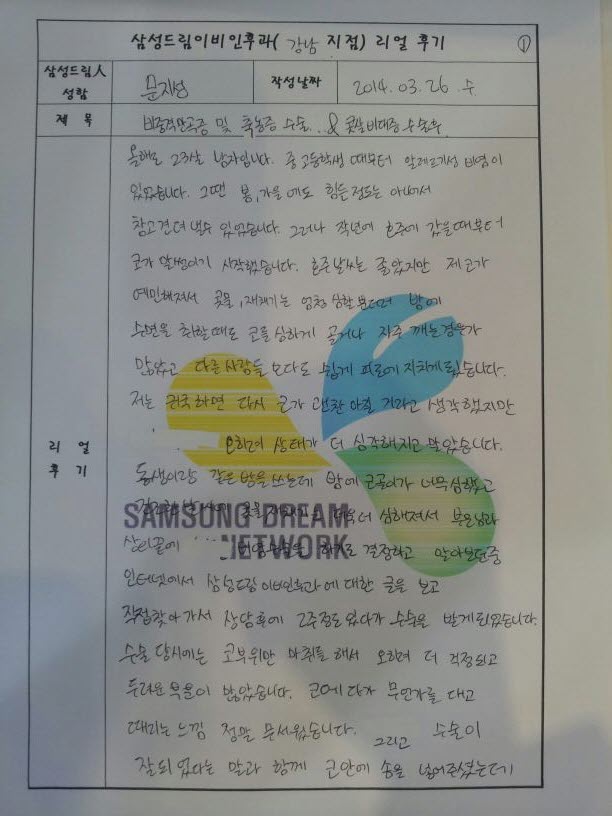 삼성드림이비인후과( 강남 지점) 리얼 후기 ①
삼성드림人 성함 문지성 작성날짜 2014. 03. 26 수
제 목 비중격만곡증 및 축농증 수술.. & 콧살비대증 수술후
올해로 23살 남자입니다. 중고등학생 때부터 알레르기성 비염이
있었습니다. 그땐 봄, 가을에도 힘든정도는 아니여서
참고견뎌 낼수 있었습니다. 그러나 작년에 호주에 갔을때부터
코가 말썽이기 시작했습니다. 호주날씨는 좋았지만 제코가
예민해져서 콧물, 재채기는 엄청 심할뿐더러 밤에
수면을 취할때도 코를 심하게 골거나 자주 깨는경우가
많았고 다른사람들 보다도 쉽게 피로에 지치게됬습니다.
저는 귀국하면 다시 코가 괜찮아질 거라고 생각했지만
오히려 상태가 더 심각해지고 말았습니다.
동생이랑 같은방을쓰는데 밤에 코골이가 너무심했고
콧물 더욱더 심해져서 부모님과
상의끝에 하기로 결정하고 알아보던중
인터넷에서 삼성드림이비인후과에 대한 글을 보고
직접찾아가서 상담후에 2주정도있다가 수술을 받게되었습니다.
수술 당시에는 코부위만 마취를 해서 오히려 더 걱정되고
두려운 부분이 많았습니다. 코에다가 무언가를 대고
때리는느낌 정말 무서웠습니다. 그리고 수술이
잘되었다는 말과 함께 코안에 솜을 넣어주셨는데
SAMSUNG DREAM
NETWORK
리 얼
후 기